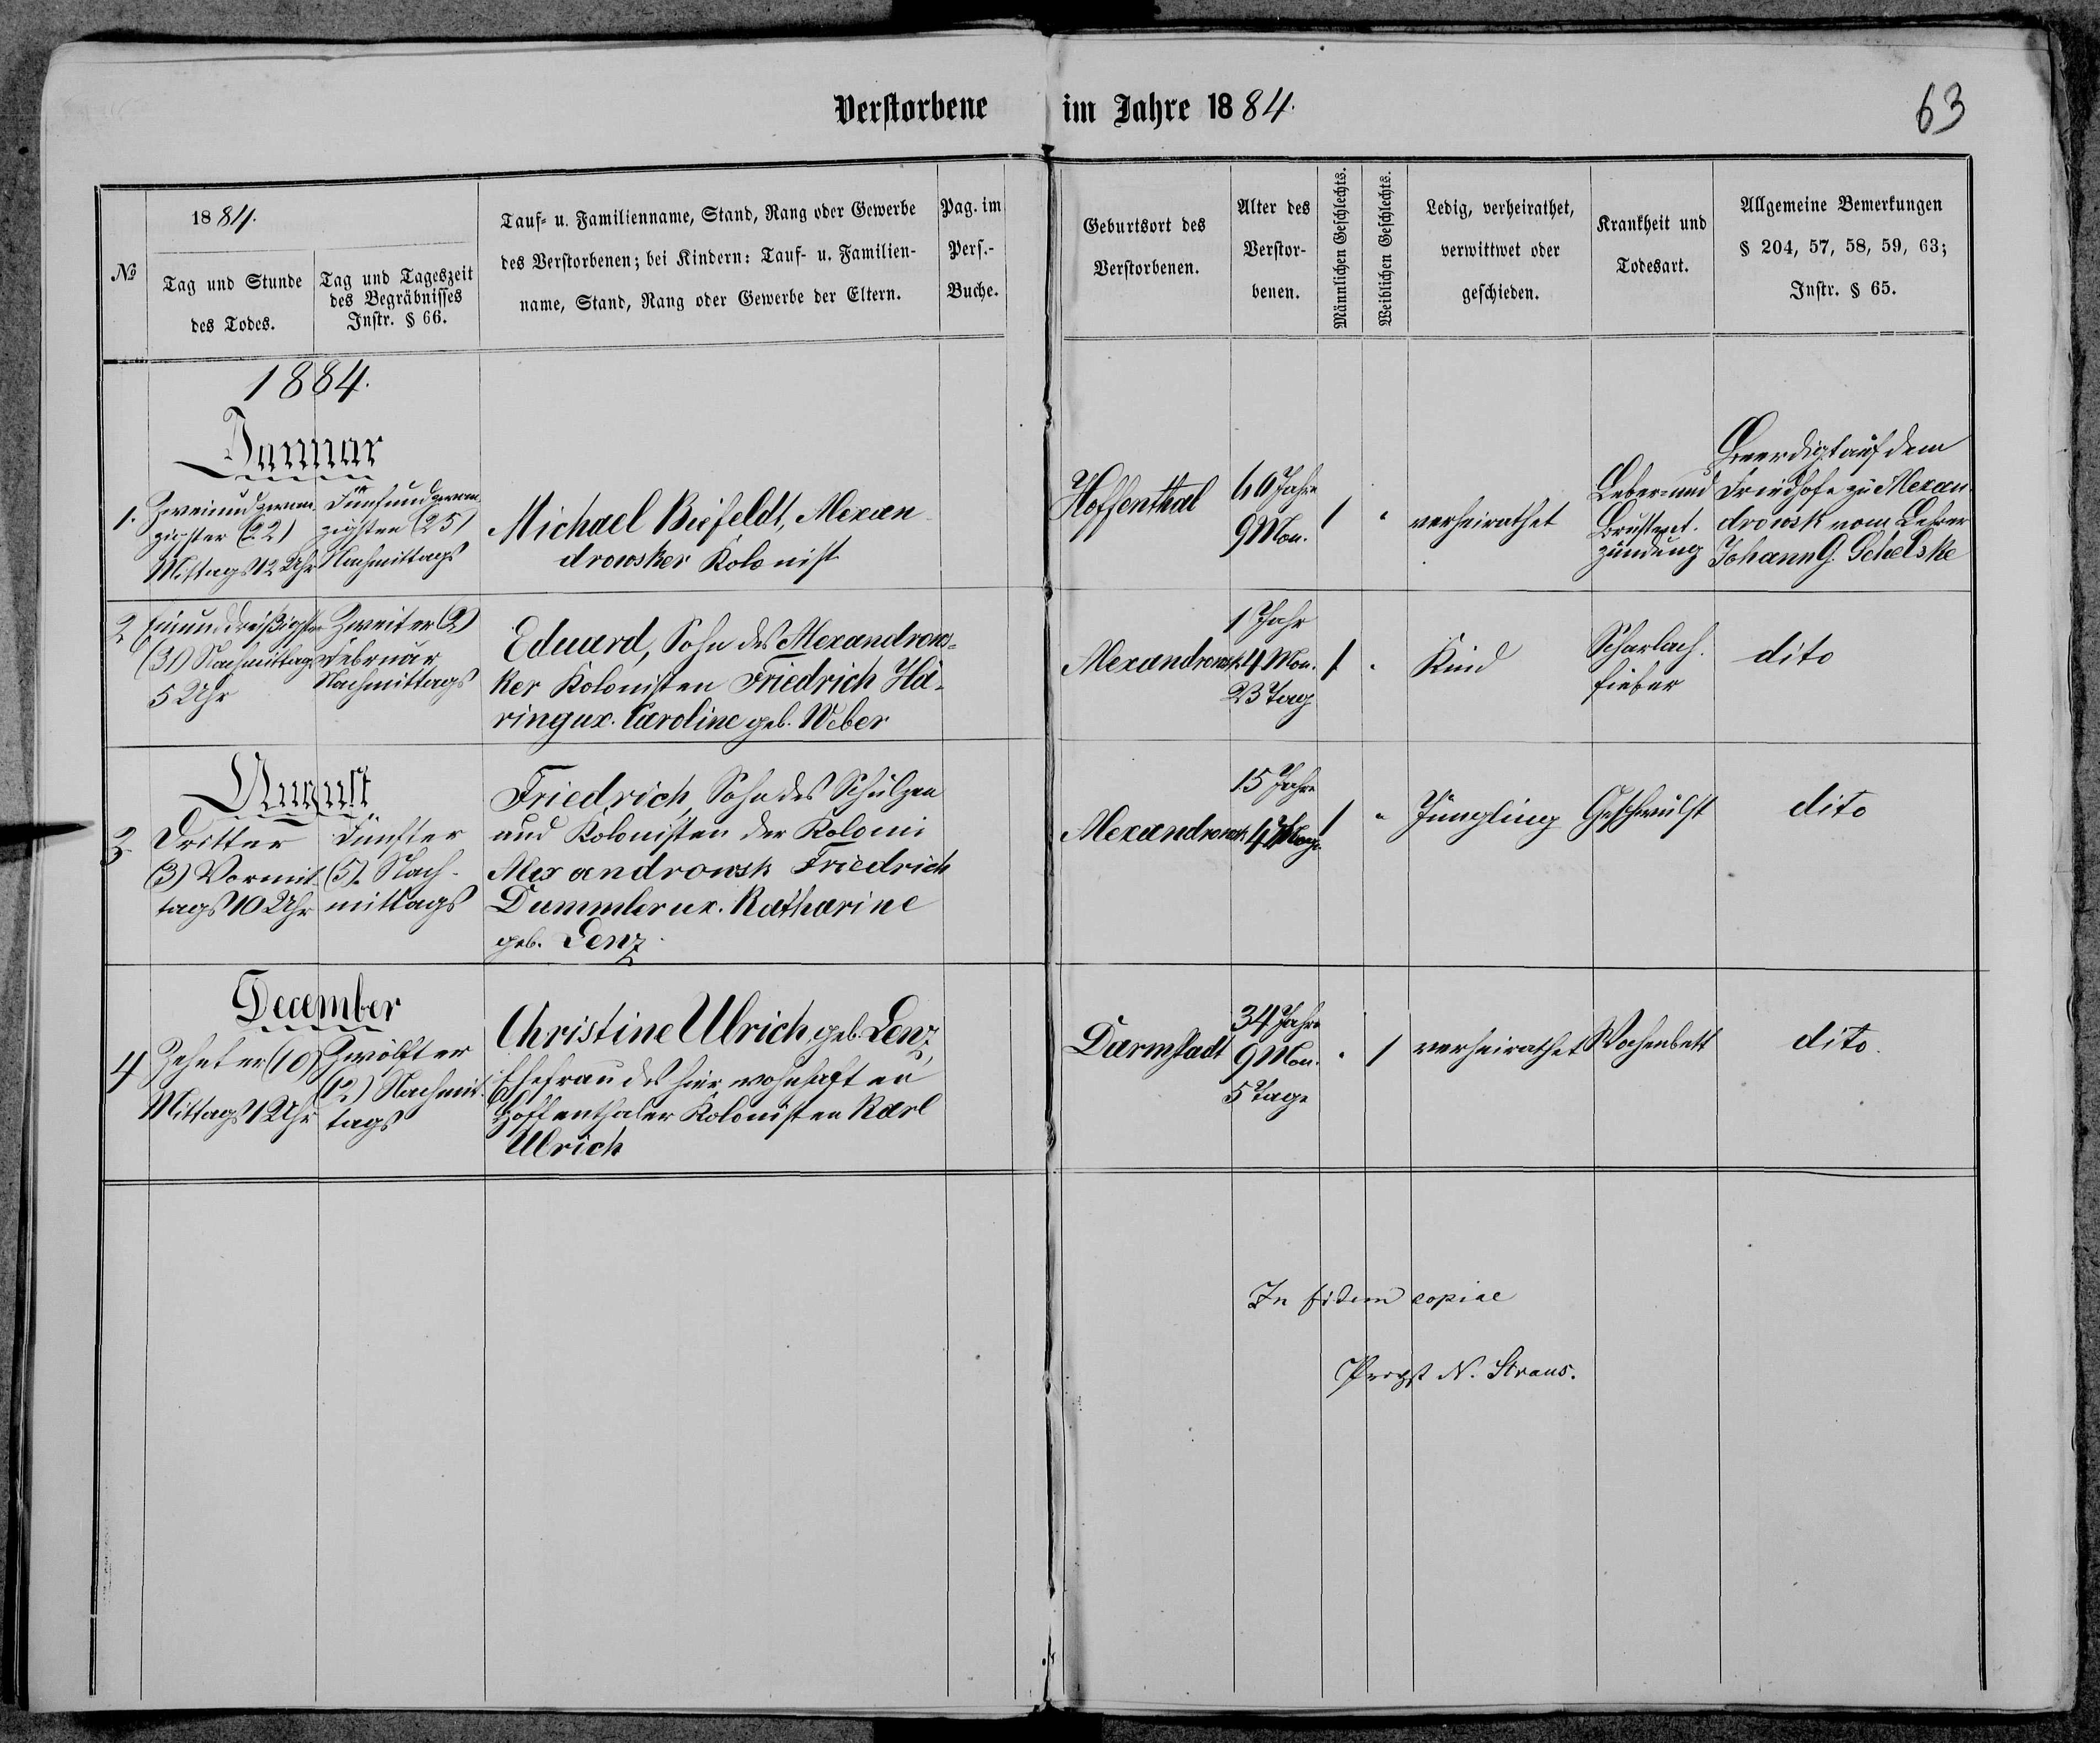 Verstorbene im Jahre 1884.
63
№
1884.
Tag und Stunde
des Todes.
Tag und Tageszeit
des Begräbnisses
Instr. § 66.
Tauf- u. Familienname, Stand, Rang oder Gewerbe
des Verstorbenen; bei Kindern: Tauf- u. Familien-
name, Stand, Rang oder Gewerbe der Eltern.
Pag. im
Pers.-
Buche.
Geburtsort des
Verstorbenen.
Alter des
Verstor-
benen.
Männlichen Geschlechts.
Weiblichen Geschlechts.
Ledig, verheirathet,
verwittwet oder
geschieden.
Krankheit und
Todesart.
Allgemeine Bemerkungen
§ 204, 57, 58, 59, 63;
Instr. § 65.
1884.
Januar
1.
Zweiundzwan-
zigster (22)
Mittags 12 Uhr
Fünfundzwan-
zigsten (25)
Nachmittags
Michael Biefeldt, Alexan-
drowsker Kolonist
Hoffenthal
66 Jahre
9 Mon.
1
"
verheirathet
Leber- und
Brustent-
zündung
Beerdigt auf dem
Friedhofe zu Alexan-
drowsk vom Lehrer
Johann G. Schelske
2
Einunddreißigster
(31) Nachmittags
5 Uhr
Zweiter (2)
Februar
Nachmittags
Eduard, Sohn des Alexandrows-
ker Kolonisten Friedrich Hä-
ring ux. Caroline geb. Weber
Alexandrowsk
1 Jahr
4 Mon.
23 Tag
1
"
Kind
Scharlach-
fieber
dito
August
3
Dritter
(3) Vormit-
tags 10 Uhr
Fünfter
(5). Nach-
mittags
Friedrich, Sohn des Schulzen
und Kolonisten der Koloni
Alexandrowsk Friedrich
Dummler ux. Katharine
geb. Lenz.
Alexandrowsk
15 Jahre
1
"
Jüngling
Geschwulst
dito
December
4
Zehnter (10)
Mittags 1 Uhr
Zwölfter
(12) Nachmit-
tags
Christine Ulrich, geb. Lenz,
Ehefrau des hier wohnhaften
Hoffenthaler Kolonisten Karl
Ulrich
Darmstadt
34 Jahre
9 Mon.
5 Tage
"
1
verheirathet
Wochenbett
dito.
In fidem copiae
Propst N. Straus.